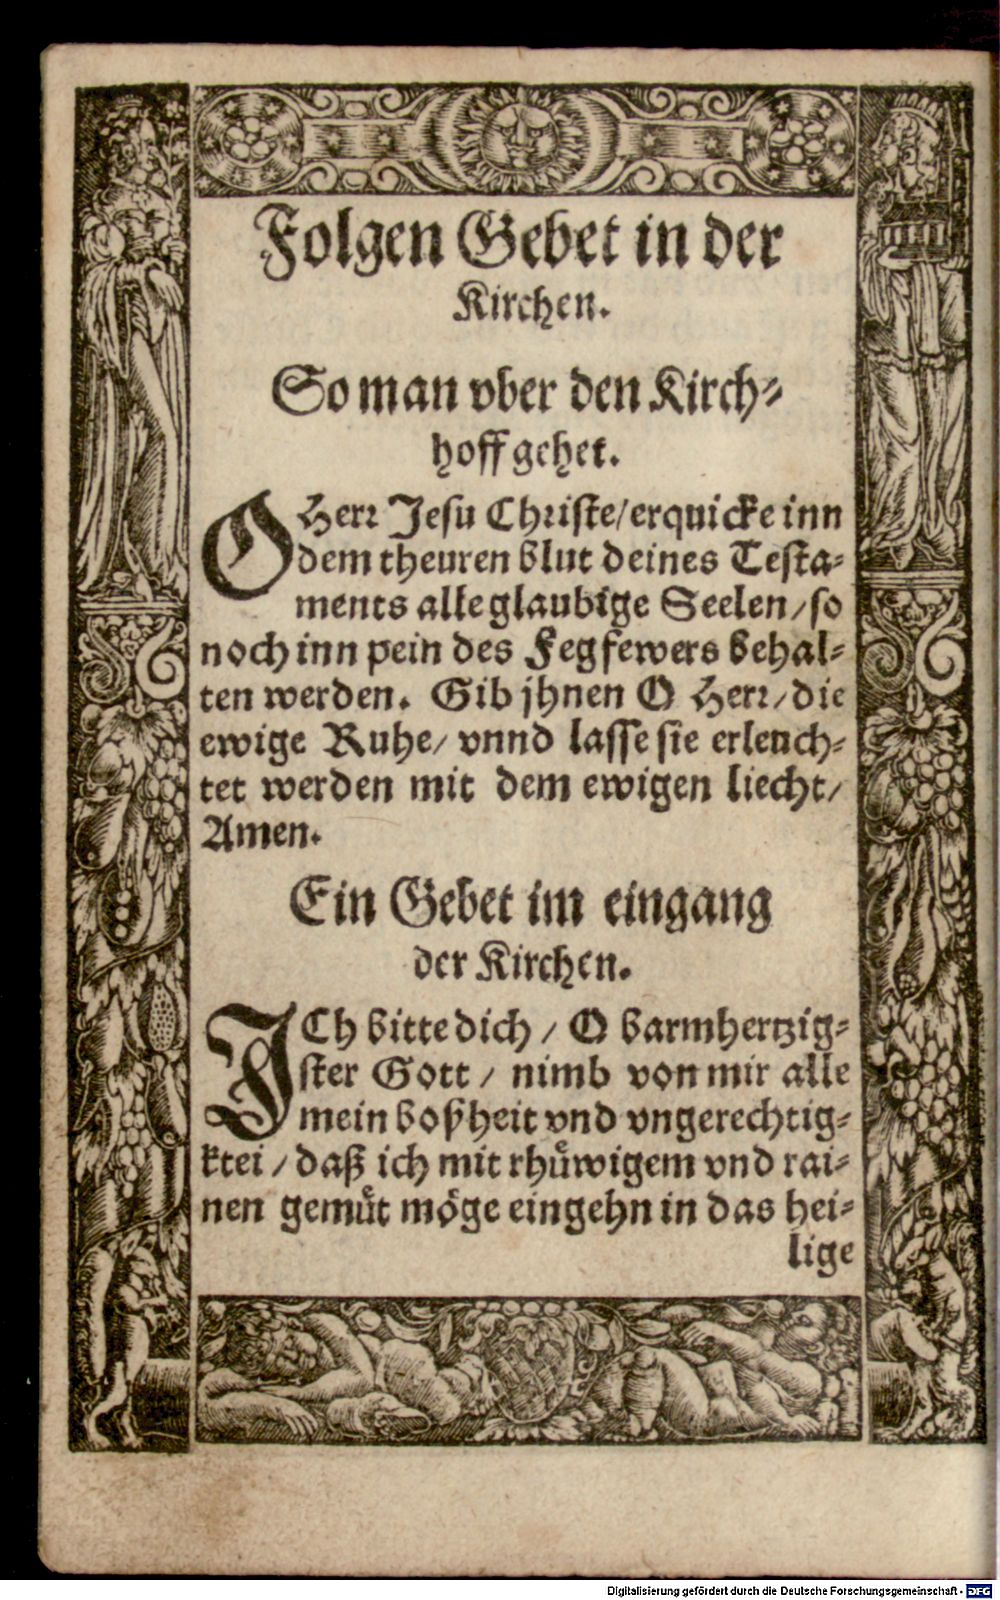 Folgen Gebet in der
Kirchen.
So man vber den Kirch⸗
hoff gehet.
O Herr Jesu Christe/ erquicke inn
dem theuren blut deines Testa⸗
ments alle glaubige Seelen/ so
noch inn pein des Fegfewers behal⸗
ten werden. Gib jhnen O Herr/ die
ewige Ruhe/ vnnd lasse sie erleuch⸗
tet werden mit dem ewigen liecht/
Amen.
Ein Gebet im eingang
der Kirchen.
ICh bitte dich/ O barmhertzig⸗
ster Gott/ nimb von mir alle
mein boßheit vnd vngerechtig⸗
ktei/ daß ich mit rhuͤwigem vnd rai⸗
nen gemuͤt moͤge eingehn in das hei⸗
lige
Digitalisierung gefördert durch die Deutsche Forschungsgemeinschaft - DFG